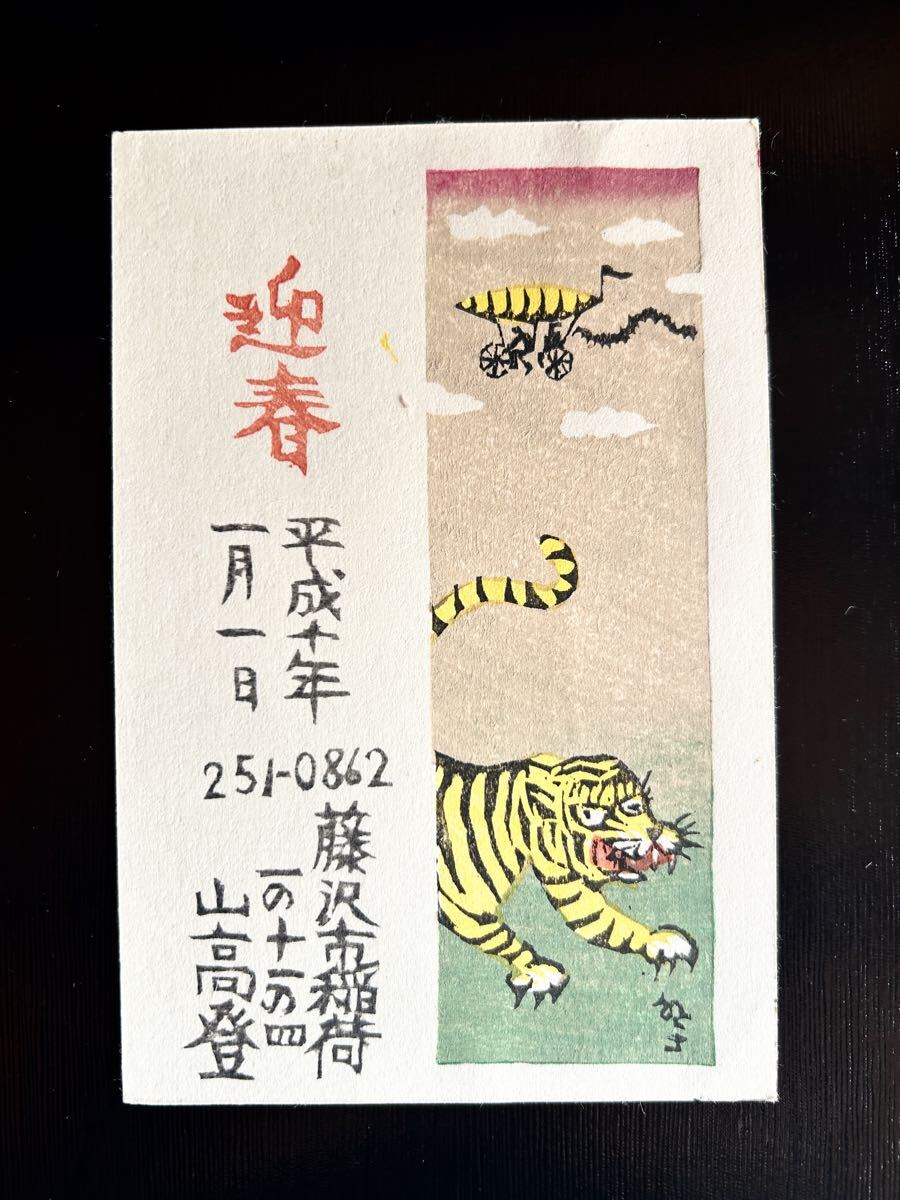 迎春
平成十年
一月一日
251-0862
藤沢市稲荷
一の十一の四
山高登